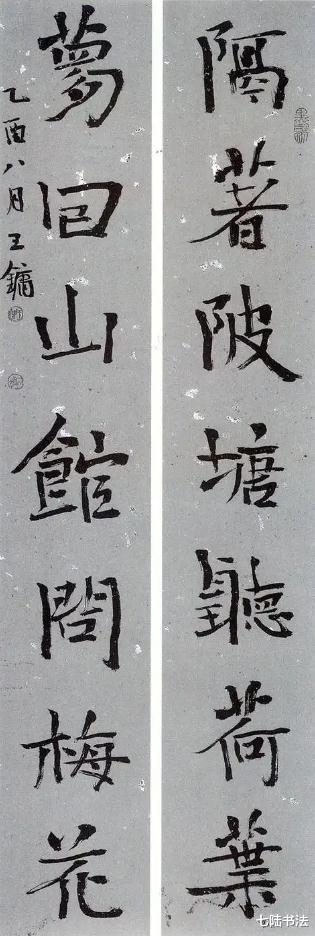 隔著陂塘聽荷葉
夢回山館問梅花
乙酉八月王鏞
七陆书法